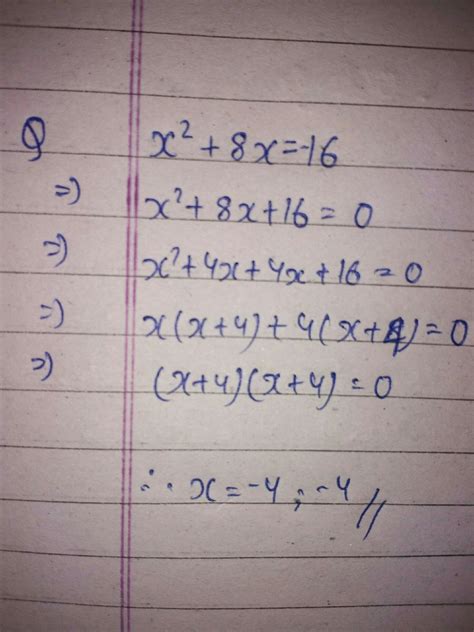 Q x² + 8x = -16
=) x² + 8x + 16 = 0
=) x² + 4x + 4x + 16 = 0
=) x(x+4) + 4(x+4) = 0
=) (x+4)(x+4) = 0
∴ x = -4 ; -4 //